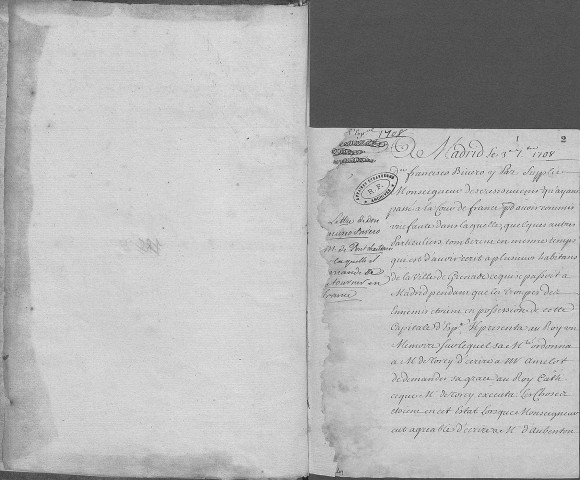 1708
1 2
De Madrid le 1er 7bre 1708
Dn francisco Bivero y Paz Supplie
Monseigneur de se ressouvenir qu'ayant
passé a la Cour de france pr avoir commis
une faute dans laquelle quelques autres
particuliers tomberent en mesme temps
qui est d'avoir escrit a plusieurs habitans
de la Ville de Grenade ce qui se passoit a
Madrid pendant que les troupes des
Ennemis estoient en possession de cette
Capitale d'Espe Il presenta au Roy un
Memoire sur lequel sa Mté ordonna
a M. de Torcy d'ecrire a Mr Amelot
de demander sa grace au Roy Cath
ce que M. de Torcy executa Les choses
étoient en cet état Lorsque Monseigneur
eut agreable d'ecrire a M. d'Aubenton
Lettre de Don
M. de Pontchartrain
laquelle il
demande de
retourner en
france
R. F.
ARCHIVES